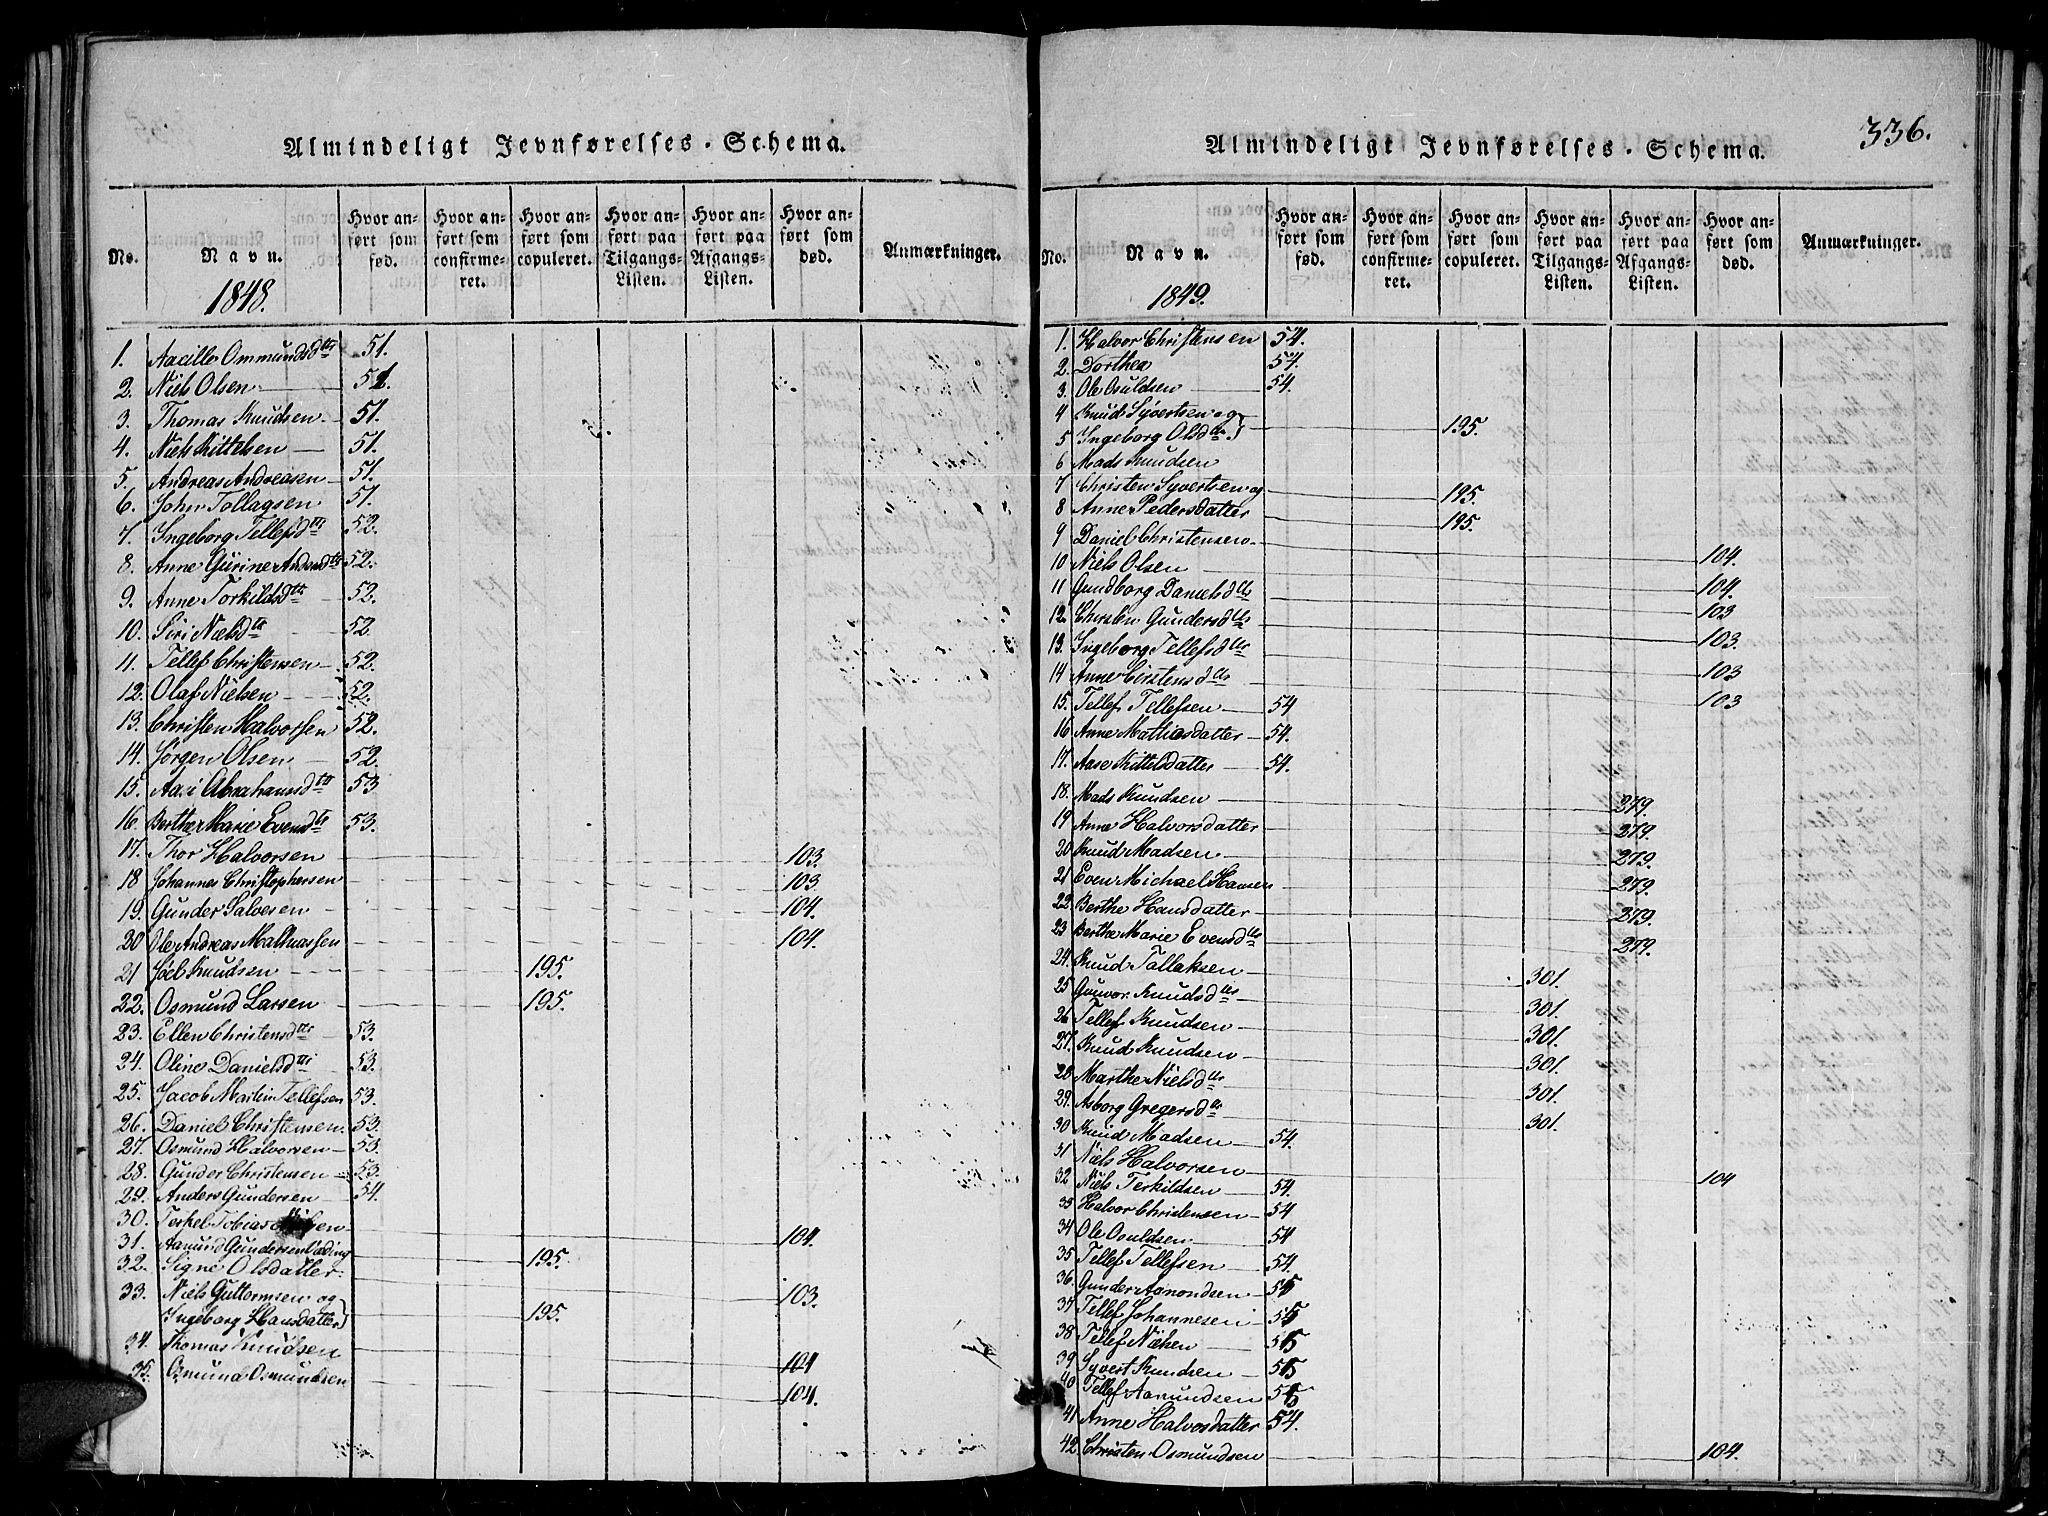 Almindeligt Jevnførelses-Schema.
No.
Navn.
1848.
Hvor anført som fød.
Hvor anført som confirmeret.
Hvor anført som copuleret.
Hvor anført paa Tilgangs-Listen.
Hvor anført paa Afgangs-Listen.
Hvor anført som død.
Anmærkninger.
1. Aacille Ommundsdtr 51.
2. Niels Olsen 51.
3. Thomas Knudsen 51.
4. Niels Kittelsen 51.
5. Andreas Andreasen 51.
6. Joher Tollagsen 51.
7. Ingeborg Tellefsdtr 52.
8. Anne Gurine Andersdtr 52.
9. Anne Torkildsdtr 52.
10. Siri Nielsdtr 52.
11. Tellef Christensen 52.
12. Olaf Nielsen 52.
13. Christen Halvorsen 52.
14. Jørgen Olsen 52.
15. Abrahamsdtr 53
16. Berthe Marie Evensdtr 53.
17. Thor Halvorsen 103.
18 Johannes Christophersen 103.
19. Gunder Salvesen 104.
20 Ole Andreas Mathiassen 104.
21 Joel Knudsen 195.
22. Osmund Larsen 195.
23. Ellen Christensdtr 53.
24. Oline Danielsdtr 53.
25. Jacob Martin Tellefsen 53.
26. Daniel Christensen. 53.
27. Osmund Halvorsen 53.
28. Gunder Christensen 53.
29. Anders Gundersen 54.
30. Terkel Tobias 104.
31. Aamund Gundersen
32. Signe Olsdatter. 195.
33. Niels Guttormsen og 103.
Ingeborg Hansdatter 195.
34. Thomas Knudsen 104
35. Osmund Osmundsen 104.
336.
Almindeligt Jevnførelses-Schema.
No.
Navn.
1849.
Hvor anført som fød.
Hvor anført som confirmeret.
Hvor anført som copuleret.
Hvor anført paa Tilgangs-Listen.
Hvor anført paa Afgangs-Listen.
Hvor anført som død.
Anmærkninger.
1. Halvor Christensen 54.
2. Dorthea 54.
3. Ole Osuldsen 54.
4 Knud Syvertsen og
5 Ingeborg Olsdtr 195.
6 Mads Knudsen
7 Christen Syvertsen og 195.
8 Anne Pedersdatter 195.
9 Daniel Christensen
10 Niels Olsen 104.
11 Gundborg Danielsdtr 104.
12. Christen Gundersdtr 103
13. Ingeborg Tellefsdtr 103.
14 Anne Cirstensdtr 103
15. Tellef Tellefsen 54 103
16 Anne Mathisdatter 54.
17. Aase Kittelsdatter 54.
18. Mads Knudsen 279.
19 Anne Halvorsdatter 279.
20 Knud Madsen 279.
21 Even Michael Hansen 279.
22. Berthe Hansdatter 279
23 Berthe Marie Evensdtr 279.
24. Knud Tallaksen 301.
25 Gunvor Knudsdtr 301.
26 Tellef Knudsen 301.
27. Knud Knudsen 301.
28 Marthe Nielsdtr 301.
29. Asborg Gregersdtr 301.
30 Knud Madsen 54.
31 Niels Halvorsen 104
32 Niels Terkildsen 54.
33 Halvor Christensen 54
34 Ole Osuldsen 54
35 Tellef Tellefsen 54.
36. Gunder Aanondsen 55
37 Tellef Johannesen 55
38 Tellef Nielsen 55
39 Syvert Knudsen 55
40 Tellef Aamundsen 55
41 Anne Halvorsdatter 54.
42 Christen Osmundsen 104.